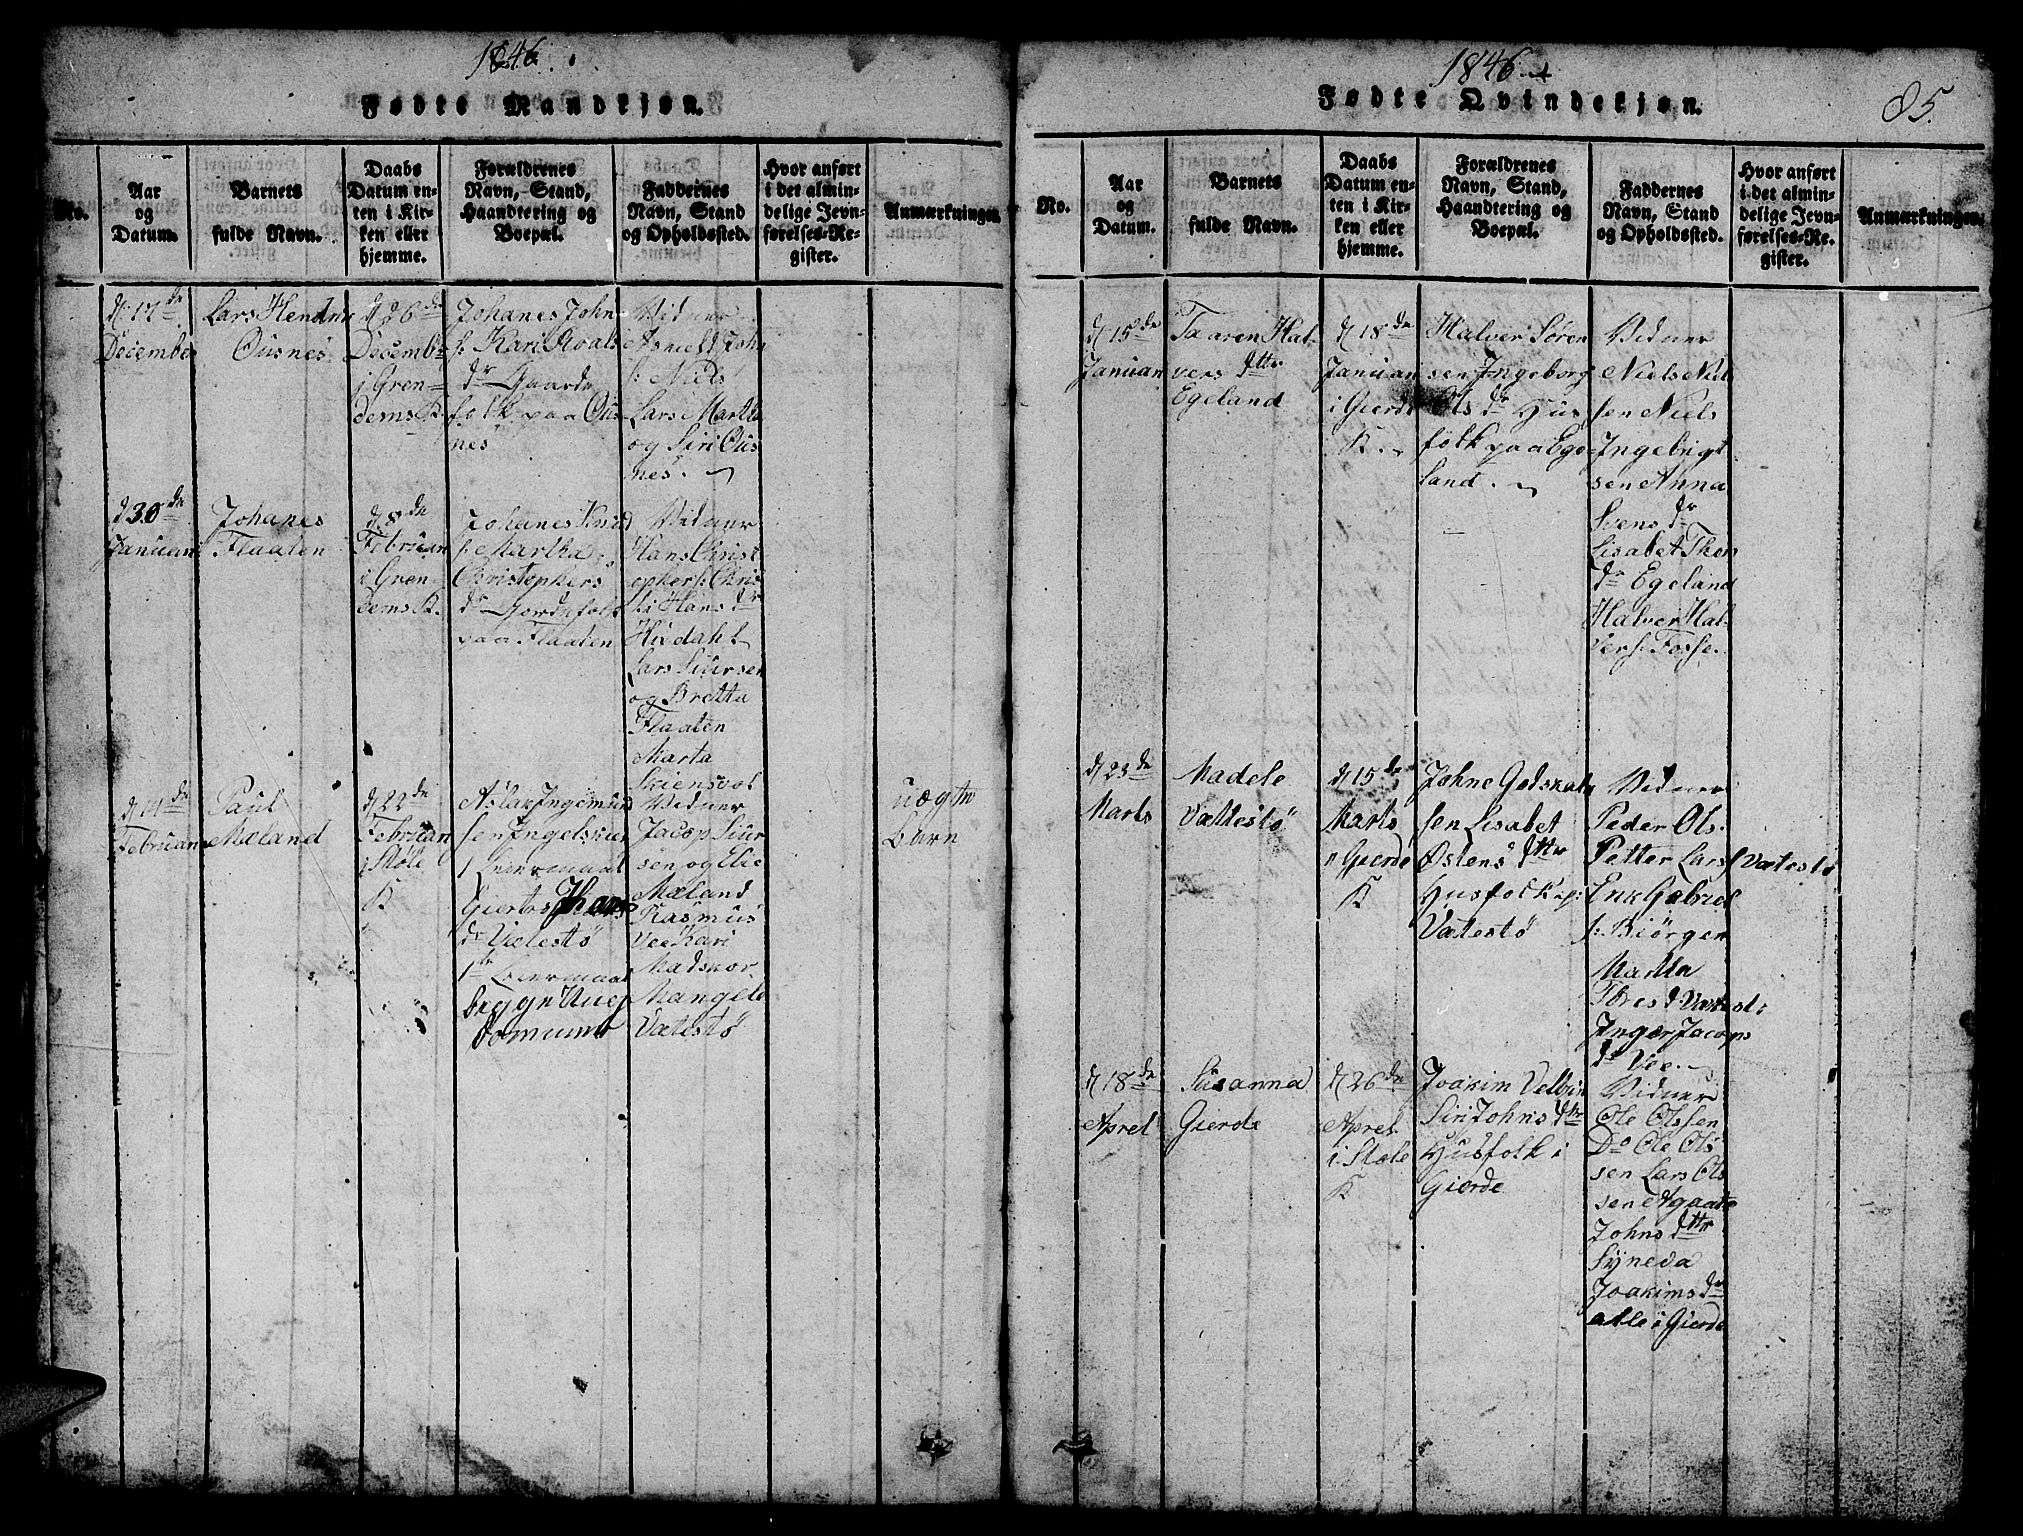 1846
Fødte Mandkjøn.
No.
Aar
og
Datum.
Barnets
fulde Navn.
Daabs
Datum en-
ten i Kir-
ken eller
hjemme.
Forældrenes
Navn, Stand,
Haandtering og
Boepæl.
Faddernes
Navn, Stand
og Opholdssted.
Hvor anført
i det almin-
delige Jevn-
førelses-Re-
gister.
Anmærkninger.
d 17de
December
Lars Hendrik
Ousnes
d 26de
Decembr
i Gren-
dems K.
Johanes John-
s: Kari Roals
dr Gaarde
folk paa Ous
nes
Vidner
John
s: Niels
Lars Martha
og Siri Ous
nes.
d 30de
Januari
Johanes
Flaaten
d 8de
Februari
i Gren-
dems K.
Johanes Knud
s: Martha
Christophers
dr Gordefolk
paa Flaaten
Vidner
Hans Christ
opher s: Chris
ti Hans dr
Hivdahl
Lars Siursen
og Bretta
Flaaten
Marta
Skiensvol
d 11de
Februari
Paul
Mæland
d 22de
Februari
i Støle
K
Aslak Ingemund
sen Ingelskier
1 Leiermaal
Giertos
dr Vætestö
1te Leiermaal
begge Uneg
Vidner
Jacop Siur
sen og Elie
Mæland
Rasmus
Vee Kari
Madskor
Mangele
Vætestö
uægte
barn
1846
85.
Fødte Qvindekjøn.
No.
Aar
og
Datum.
Barnets
fulde Navn.
Daabs
Datum en-
ten i Kir-
ken eller
hjemme.
Forældrenes
Navn, Stand,
Haandtering og
Boepæl.
Faddernes
Navn, Stand
og Opholdssted.
Hvor anført
i det almin-
delige Jevn-
førelses-Re-
gister.
Anmærkninger.
d 15de
Januari
Taaren Hal-
vers dttr
Egeland
d 18de
Januari
i Gierde
K.
Halver Søren
sen Ingeborg
Ols dr Hus
folk paa Ege
land.
Vidner
Niels Niel
sen Niels
Ingebrigt
sen Anna
Svens dr
Lisabet Thor
dr Egeland
Halver Hal-
vers: Fosse.
d 23de
Marts
Madele
Vættestö
d 15de
Marts
i Gierde
K
Johne Godskalk
sen Lisabet
Østens dttr
Husfolk p:
Vætestö
Vidner
Peder Ols.
Petter Lars Vætestö
Erik Gabriel
s: Biörgen
Martha
Tores d Vætestö
Inger Jacops
dr Vee.
d 18de
Aprel
Susanna
Gierde
d 26de
Aprel
i Støle
K
Joakim Velbiör
Siri Johns dttr
Husfolk i
Gierde
Vidner
Ole Olssen
Do Ole Ols
sen Lars Ols
sen Agaate
Johns dttr
Syneva
Joakims dr
alle i Gierde